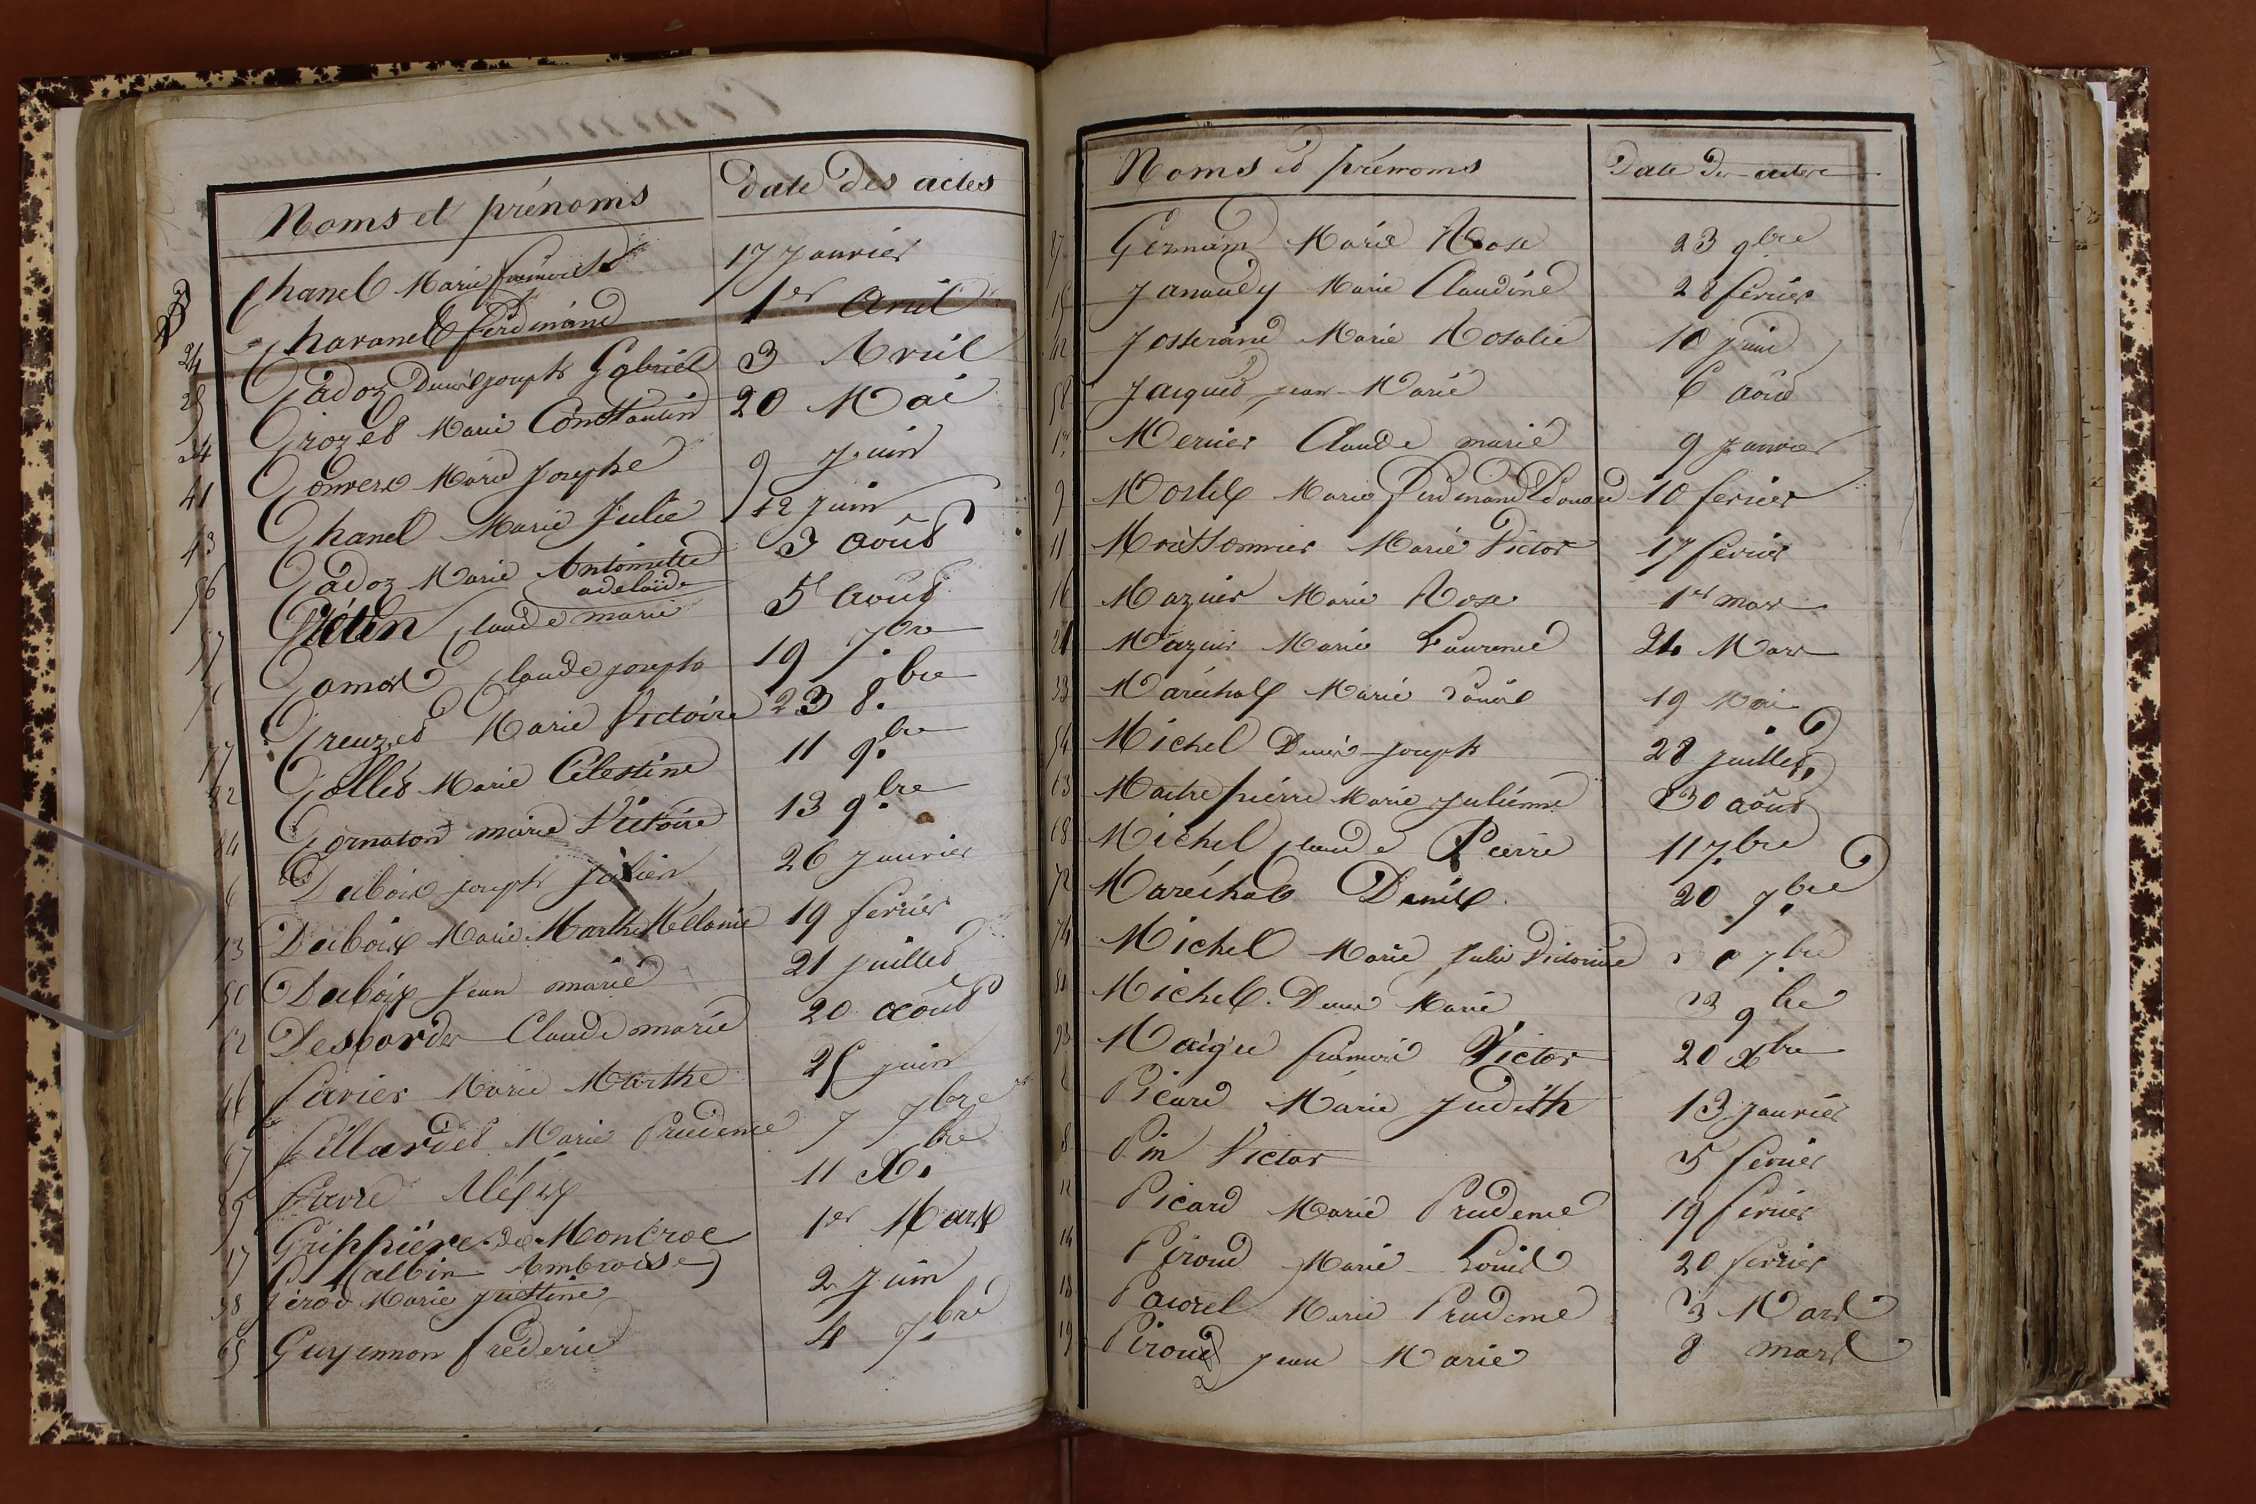 Noms et prénoms date des actes
Chanel Marie 17 Janvier
Charanel ferdinand 1er Avril
24 Cadoz Denis joseph Gabriel 3 Avril
28 Crozet Marie Constantin 20 Mai
Convers Marie Josephe 9 juin
41 Chanel Marie Julie 12 juin
43 Cadoz Marie Antoinette 3 août
adelaïde
56 Crétin Claude marie 5 août
57 Comas Claude joseph 19 7bre
Creuzet Marie Victoire 23 8bre
77 Collet Marie Célestine 11 9bre
82 Cornaton marie Victoire 13 9bre
84
6 Dubois joseph julien 26 Janvier
13 Dubois Marie Marthe Mélanie 19 ferier
50 Dubois Jean marie 21 juillet
62 Desbordes Claude marie 20 août
46 favier Marie Marthe 25 juin
67 fillardet Marie Prudence 7 7bre
89 favre Alépix 11 Xbre
17 Grippière de Moncroc 1er Mars
(albin Ambroise)
38 Gérod Marie justine 2 juin
65 Guyennon fréderic 4 7bre
Noms et prénoms Date des actes
87 Germain Marie Rose 23 9bre
15 Janaudy Marie Claudine 28 ferier
42 Josserand Marie Rosalie 10 juin
58 Jacquet jean Marie 6 août
Mercier Claude marie 9 Janvier
9 Mortel Marie ferdinand Edouard 10 ferier
11 Moissonnier Marie Victor 17 ferier
16 Mazuir Marie Rose 1er mars
21 Mazuir Marie Laurence 24 Mars
Maréchal Marie Louise 19 Mai
54 Michel Denis joseph 28 juillet
63 Maitrepierre Marie julienne 30 août
68 Michel Claude Pierre 11 7bre
72 Maréchal Denis 20 7bre
74 Michel Marie julie Victorine 7bre
80 Michel Denis Marie 3 9bre
93 Maigre Victor 20 Xbre
Picard Marie Judith 13 janvier
8 Pin Victor 5 ferier
12 Picard Marie Prudence 19 ferier
14 Piroud Marie Louise 20 ferier
18 Paurel Marie Prudence 3 Mars
19 Piroud jean Marie 8 mars